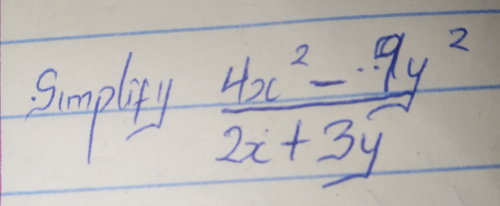 Simplify 4x² - 9y²
2x + 3y